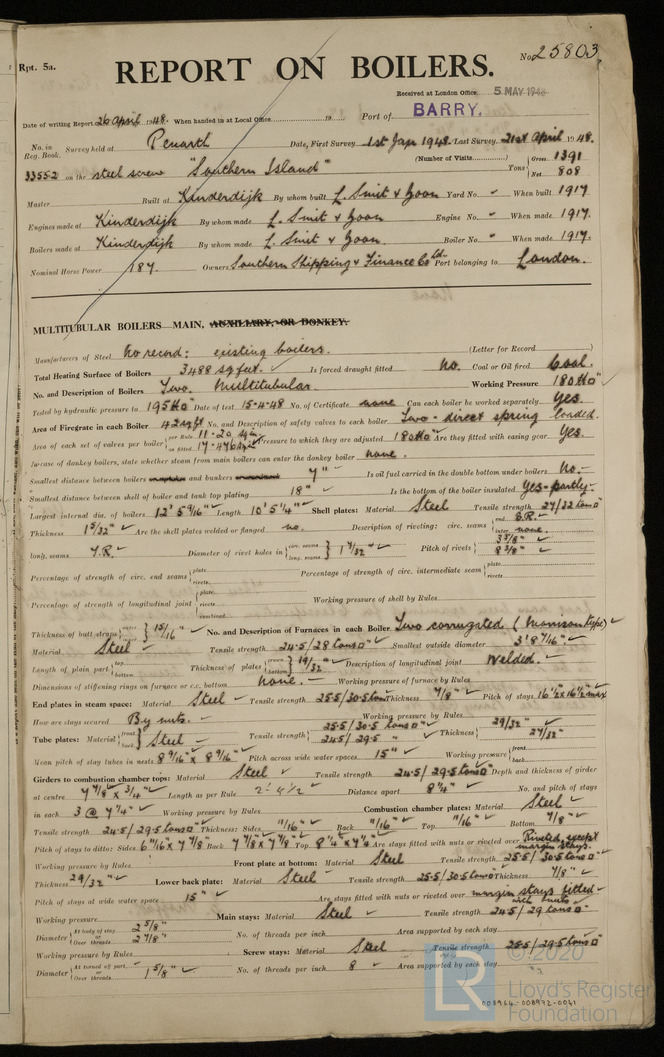 Rpt. 5a.
No. 25803
REPORT ON BOILERS.
Received at London Office 5 MAY 1948
Date of writing Report 26 April 1948. When handed in at Local Office 19 Port of BARRY.
No. in Reg. Book. Survey held at Penarth Date, First Survey 1st Jan 1948 Last Survey 21st April 1948.
(Number of Visits)
33552 on the steel screw "Southern Island" Tons Gross 1391 Net 808
Master Built at Kinderdijk By whom built L. Smit & Zoon Yard No. " When built 1917
Engines made at Kinderdijk By whom made L. Smit & Zoon Engine No. " When made 1917.
Boilers made at Kinderdijk By whom made L. Smit & Zoon Boiler No. " When made 1917.
Nominal Horse Power 187. Owners Southern Shipping & Finance Co Ltd. Port belonging to London.
MULTITUBULAR BOILERS MAIN, AUXILIARY, OR DONKEY.
Manufacturers of Steel No record: existing boilers. (Letter for Record )
Total Heating Surface of Boilers 3488 sq feet. Is forced draught fitted No. Coal or Oil fired Coal.
No. and Description of Boilers Two. Multitubular. Working Pressure 180 lbs □"
Tested by hydraulic pressure to 195 lbs □" Date of test 15-4-48 No. of Certificate none Can each boiler be worked separately Yes.
Area of Firegrate in each Boiler 42 sq ft No. and Description of safety valves to each boiler Two - direct spring loaded.
Area of each set of valves per boiler per Rule 11-20 sq in as fitted 17-476 sq in Pressure to which they are adjusted 180 lbs □" Are they fitted with easing gear Yes.
In case of donkey boilers, state whether steam from main boilers can enter the donkey boiler none.
Smallest distance between boilers and bunkers 7" Is oil fuel carried in the double bottom under boilers No.
Smallest distance between shell of boiler and tank top plating 18" Is the bottom of the boiler insulated Yes-partly-
Largest internal dia. of boilers 12' 5 9/16" Length 10' 5 1/4" Shell plates: Material Steel Tensile strength 27/32 tons □"
Thickness 1 5/32" Are the shell plates welded or flanged no. Description of riveting: circ. seams end D.R. inter. none.
long. seams T.R. Diameter of rivet holes in circ. seams long. seams 1 7/32" Pitch of rivets 3 5/8" 8 3/8"
Percentage of strength of circ. end seams plate rivets Percentage of strength of circ. intermediate seam plate rivets
Percentage of strength of longitudinal joint plate rivets combined Working pressure of shell by Rules
Thickness of butt straps outer inner 15/16" No. and Description of Furnaces in each Boiler Two corrugated (Morison type)
Material Steel Tensile strength 24.5/28 tons □" Smallest outside diameter 3' 8 7/16"
Length of plain part top bottom Thickness of plates crown bottom 19/32" Description of longitudinal joint Welded.
Dimensions of stiffening rings on furnace or c.c. bottom none. Working pressure of furnace by Rules
End plates in steam space: Material Steel Tensile strength 25.5/30.5 tons Thickness 7/8" Pitch of stays 16 1/2 x 16 1/2 max
How are stays secured By nuts. Working pressure by Rules
Tube plates: Material front back Steel Tensile strength 25.5/30.5 tons □" 24.5/29.5 " Thickness 29/32" 27/32"
Mean pitch of stay tubes in nests 8 9/16" x 8 9/16" Pitch across wide water spaces 15" Working pressure front back
Girders to combustion chamber tops: Material Steel Tensile strength 24.5/29.5 tons □" Depth and thickness of girder
at centre 7 7/8" x 3/4" Length as per Rule 2' 4 1/2" Distance apart 8 1/4" No. and pitch of stays
in each 3 @ 7 3/4" Working pressure by Rules Combustion chamber plates: Material Steel
Tensile strength 24.5/29.5 tons □" Thickness: Sides 11/16" Back 11/16" Top 11/16" Bottom 7/8"
Pitch of stays to ditto: Sides 6 11/16 x 7 7/8" Back 7 7/8 x 7 7/8" Top 8 1/4" x 7 3/4" Are stays fitted with nuts or riveted over Riveted, except margin stays.
Working pressure by Rules Front plate at bottom: Material Steel Tensile strength 25.5/30.5 tons □"
Thickness 29/32" Lower back plate: Material Steel Tensile strength 25.5/30.5 tons □" Thickness 7/8"
Pitch of stays at wide water space 15" Are stays fitted with nuts or riveted over margin stays fitted with nuts
Working pressure Main stays: Material Steel Tensile strength 24.5/29 tons □"
Diameter At body of stay 2 5/8" Over threads 2 7/8" No. of threads per inch Area supported by each stay
Working pressure by Rules Screw stays: Material Steel Tensile strength 25.5/29.5 tons □"
Diameter At turned off part Over threads 1 5/8" No. of threads per inch 8 Area supported by each stay
© 2020
LR
Lloyd's Register
Foundation
008964-008972-0041